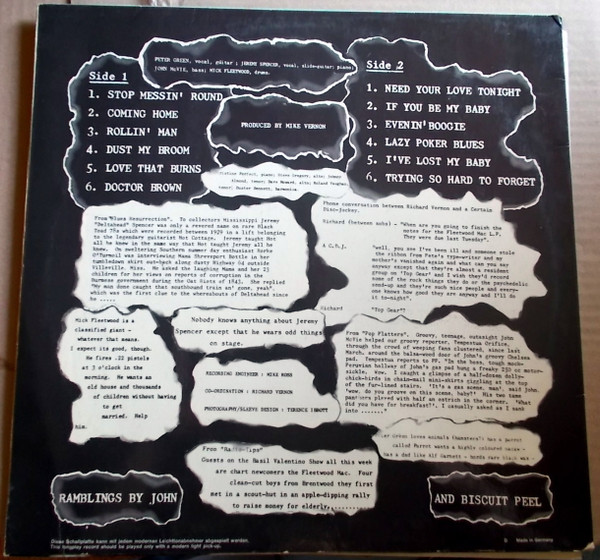 PETER GREEN, vocal, guitar ; JEREMY SPENCER, vocal, slide-guitar; piano;
JOHN McVIE, bass; MICK FLEETWOOD, drums.
Side 1
1. STOP MESSIN' ROUND
2. COMING HOME
3. ROLLIN' MAN
4. DUST MY BROOM
5. LOVE THAT BURNS
6. DOCTOR BROWN
PRODUCED BY MIKE VERNON
Side 2
1. NEED YOUR LOVE TONIGHT
2. IF YOU BE MY BABY
3. EVENIN' BOOGIE
4. LAZY POKER BLUES
5. I'VE LOST MY BABY
6. TRYING SO HARD TO FORGET
Perfect, piano; Steve Gregory, alto; Johnny
Almond, tenor; Dave Howard, alto; Roland Vaughan,
tenor; Duster Bennett, harmonica.
From "Blues Resurrection". To collectors Mississippi Jeremy
"Deltahead" Spencer was only a revered name on rare Black
Toad 78s which were recorded between 1929 in a lift belonging
to the legendary guitarist Hot Cottage. Jeremy taught Hot
all he knew in the same way that Hot taught Jeremy all he
knew. On sweltering Southern summer day enthusiast Borho
O'Maxwell was interviewing Mama Shovespot Bottle in her
tumbledown shirt outpatch along dusty Highway 61 outside
Villeville, Miss. He asked the laughing Mama and her 23
children for her views on reports of corruption in the
Burmese government during the Oat Riots of 1843. She replied
"My men done caught that southbound train an' done, yeah".
which was the first clue to the whereabouts of Deltahead since
he .....
Phone conversation between Richard Vernon and a Certain
Disc-Jockey.
Richard (between nobs) - "When are you going to finish the
notes for the Fleetwood Mac L.P.
They were due last Tuesday".
"well, you see I've been ill and someone stole
the ribbon from Pete's type-writer and my
mother's vanished again and what can you say
anyway except that they're almost a resident
group on 'Top Gear' and I wish they'd record
some of the rock things they do or the psychedelic
send-up and they're such nice people and every-
one knows how good they are anyway and I'll do
it to-night".
Richard "Top Gear"?
Mick Fleetwood is a
classified giant -
whatever that means.
I expect its good, though.
He fires .22 pistols
at 3 o'clock in the
morning. He wants an
old house and thousands
of children without having
to get
married. Help
him.
Nobody knows anything about Jeremy
Spencer except that he wears odd things
on stage.
RECORDING ENGINEER : MIKE ROSS
CO-ORDINATION : RICHARD VERNON
PHOTOGRAPHY/SLEEVE DESIGN : TERENCE IBBOTT
From "Pop Platters". Groovy, teenage, outasight John
McVie helped our groovy reporter, Tempestua Orifice,
through the crowd of weeping fans clustered, since last
March, around the balsa-wood door of john's groovy Chelsea
pad. Tempestua reports to PP. "In the bass, tough mock-
Peruvian hallway of John's gas pad hung a freaky 250 cc motor-
sickle, wow. I caught a glimpse of a half-dozen dolly-
chick-birds in chain-mail mini-skirts giggling at the top
of the fur-lined stairs. 'It's a gas scene, man', said John.
'wow, do you groove on this scene, baby?' His two tame
panthers played with half an ostrich in the corner. 'What
did you have for breakfast?', I casually asked as I sank
into .......
loves animals (hamsters); has a parrot
called Parrot wants a highly coloured
has a dad like Alf Garnett -
From
Guests on the Basil Valentino Show all this week
are chart newcomers the Fleetwood Mac. Four
clean-cut boys from Brentwood they first
met in a scout-hut in an apple-dipping rally
to raise money for elderly,..........
RAMBLINGS BY JOHN
AND BISCUIT PEEL
Diese Schallplatte kann mit jedem modernen Leichttonabnehmer abgespielt werden.
This longplay record should be played only with a modern light pick-up.
Made in Germany